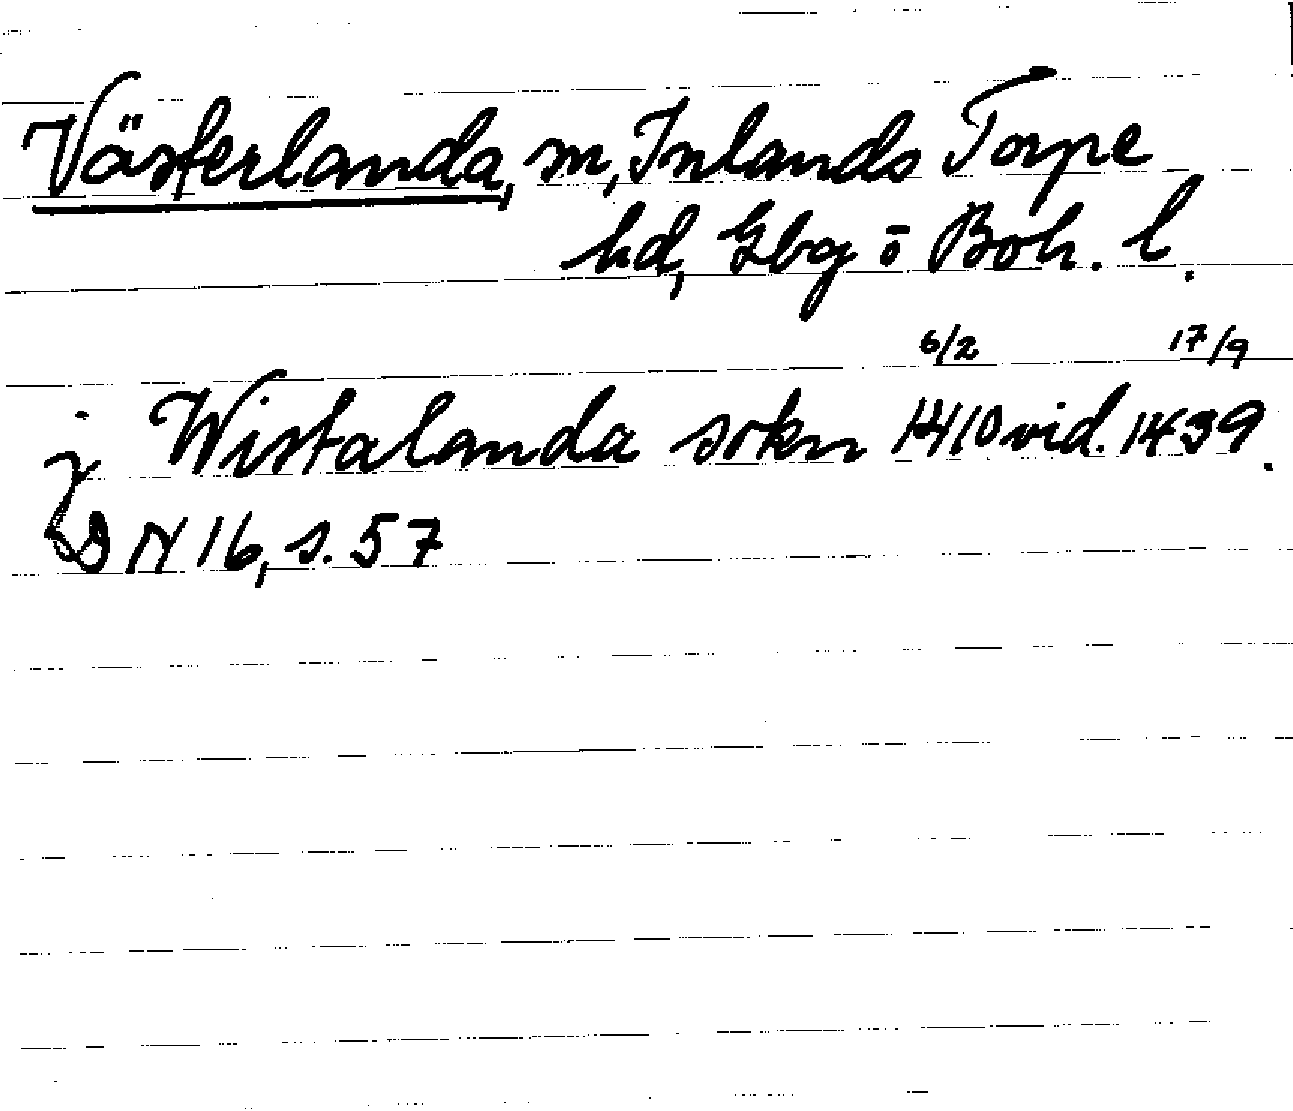 Västerlanda, sn, Inlands Torpe
hd, Gbg o Boh. l.
6/2 17/9
j Wistalanda sokn 1410 vid. 1439.
DN 16, s. 57